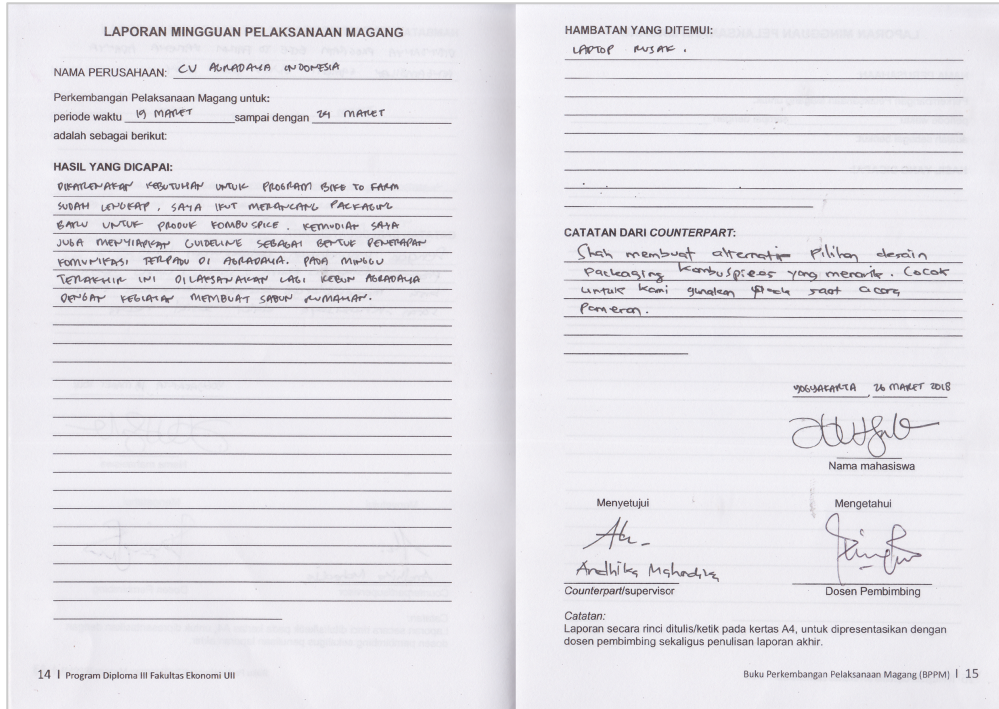 LAPORAN MINGGUAN PELAKSANAAN MAGANG
NAMA PERUSAHAAN: CV AGRADAYA INDONESIA
Perkembangan Pelaksanaan Magang untuk:
periode waktu 19 MARET sampai dengan 24 MARET
adalah sebagai berikut:
HASIL YANG DICAPAI:
DIKARENAKAN KEBUTUHAN UNTUK PROGRAM BIKE TO FARM
SUDAH LENGKAP. SAYA IKUT MERANCANG PACKAGING
BARU UNTUK PRODUK KOMBUSPICE. KEMUDIAN SAYA
JUGA MENYIAPKAN GUIDELINE SEBAGAI BENTUK PENERAPAN
KOMUNIKASI TERPADU DI AGRADAYA. PADA MINGGU
TERAKHIR INI DILAKSANAKAN LAGI KEBUN AGRADAYA
DENGAN KEGIATAN MEMBUAT SABUN RUMAHAN.
14 | Program Diploma III Fakultas Ekonomi UII
HAMBATAN YANG DITEMUI:
LAPTOP RUSAK.
CATATAN DARI COUNTERPART:
Shah membuat alternatif pilihan desain
packaging kombuspices yang menarik. Cocok
untuk kami gunakan saat acara
pameran.
YOGYAKARTA, 26 MARET 2018
Nama mahasiswa
Menyetujui Mengetahui
Andhika Mahardika
Counterpart/supervisor Dosen Pembimbing
Catatan:
Laporan secara rinci ditulis/ketik pada kertas A4, untuk dipresentasikan dengan
dosen pembimbing sekaligus penulisan laporan akhir.
Buku Perkembangan Pelaksanaan Magang (BPPM) | 15